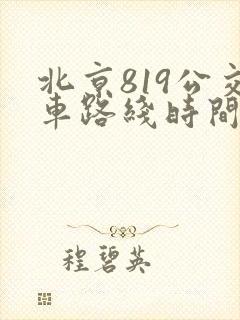 北京819公交
車路綫時間
程碧英